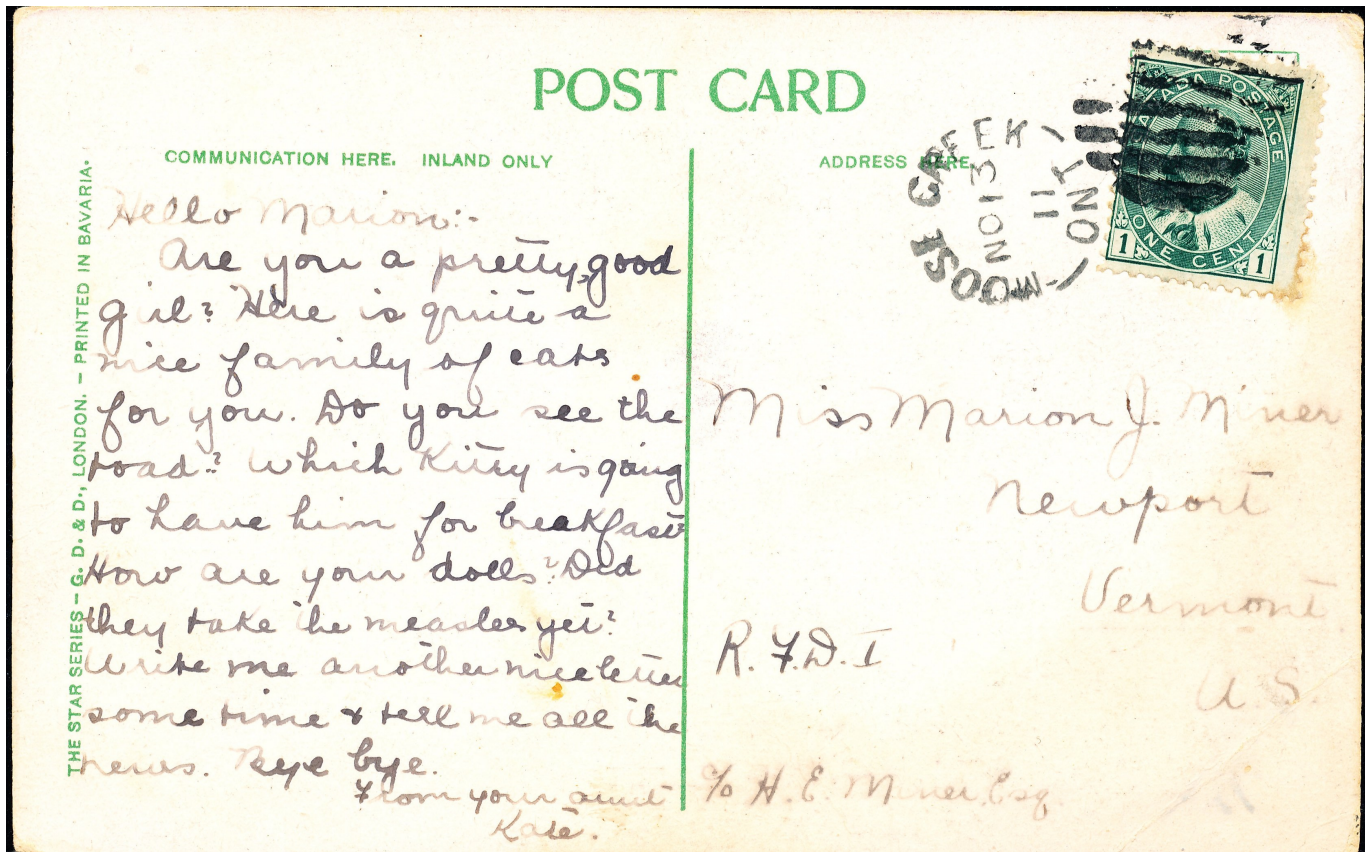 POST CARD
COMMUNICATION HERE. INLAND ONLY
ADDRESS HERE.
THE STAR SERIES – G. D. & D., LONDON. – PRINTED IN BAVARIA.
Hello Marion:-
Are you a pretty good
girl? Here is quite a
nice family of cats
for you. Do you see the
toad? Which Kitty is going
to have him for breakfast?
How are your dolls? Did
they take the measles yet?
Write me another nice letter
some time & tell me all the
news. Bye bye.
From your aunt
Kate.
MOOSE CREEK
NO 13
11
ONT
CANADA POSTAGE
1 ONE CENT 1
Miss Marion J. Miner
Newport
Vermont
R.F.D. I
U.S.
c/o H. E. Miner, Esq